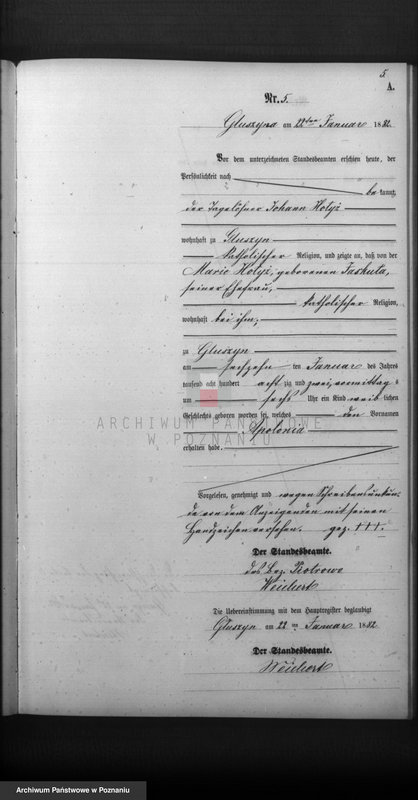 5
A.
Nr. 5.
Gluszyna am 22ten Januar 1882.
Vor dem unterzeichneten Standesbeamten erschien heute, der
Persönlichkeit nach
be kannt,
der Tagelöhner Johann Hołysz
wohnhaft zu Gluszyn
katholischer Religion, und zeigte an, daß von der
Marie Hołysz, geborenen Jaskula,
seiner Ehefrau,
katholischer Religion,
wohnhaft bei ihm,
zu Gluszyn
am sechzehn ten Januar des Jahres
tausend acht hundert acht zig und zwei, vormittag s
um sechs Uhr ein Kind weib lichen
Geschlechts geboren worden sei, welches den Vornamen
Apolonia
erhalten habe.
Vorgelesen, genehmigt und wegen Schreibensunkun-
de von dem Anzeigenden mit seinem
Handzeichen versehen. gez. +++.
Der Standesbeamte.
des Bez. Piotrowo
Weichert
Die Uebereinstimmung mit dem Hauptregister beglaubigt
Gluszyn am 22 ten Januar 1882.
Der Standesbeamte.
Weichert
ARCHIWUM PAŃSTWOWE
W POZNANIU
Archiwum Państwowe w Poznaniu